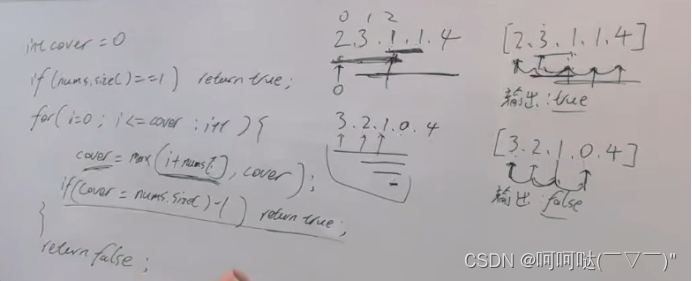 int cover = 0
if (nums.size() == 1) return true;
for (i=0; i<=cover; i++) {
cover = max(i+nums[i], cover);
if(cover = nums.size()-1) return true;
}
return false;
0 1 2
2.3.1.1.4
0
3.2.1.0.4
[2.3.1.1.4]
输出:true
[3.2.1.0.4]
输出:false
CSDN @呵呵哒(￣▽￣)"